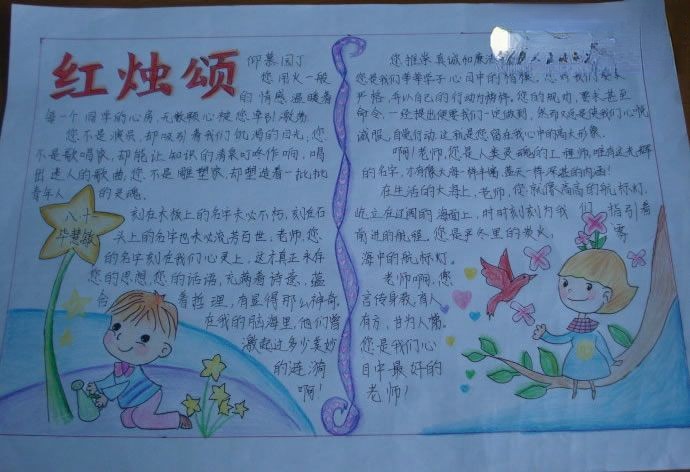 红烛颂
仰慕园丁
您用火一般
的情感温暖着
每一个同学的心房,无数颗心被您牵引激荡
您不是演员,却吸引着我们饥渴的目光,您
不是歌唱家,却能让知识的清泉叮咚作响,唱
出迷人的歌曲,您不是雕塑家,却塑造着一批批
青年人的灵魂。
刻在木板上的名字未必不朽,刻在石
头上的名字也未必流芳百世,老师,您
的名字刻在我们心灵上,这才真正永存
您的思想,您的话语,充满着诗意,蕴
含着哲理,有显得那么神奇,
在我的脑海里,他们曾
激起过多少美妙
的涟漪
啊!
八十
您推崇真诚和廉洁
您是我们莘莘学子心目中的
严格,并以自己的行动为榜样。您的规劝,要求甚至
命令,一经提出便要我们一定做到,然而又总是使我们心悦
诚服,自觉行动,这就是您留在我心中的高大形象。
啊!老师,您是人类灵魂的工程师,唯有这光辉
的名字,才有像大海一样丰富,蓝天一样深湛的内涵!
在生活的大海上,老师,您就像高高的航标灯,
屹立在辽阔的海面上,时时刻刻为我们指引着
前进的航程。您是严冬里的炭火,雾
海中的航标灯。
老师啊,您
言传身教,育人
有方,甘为人梯。
您是我们心
目中最好的
老师!